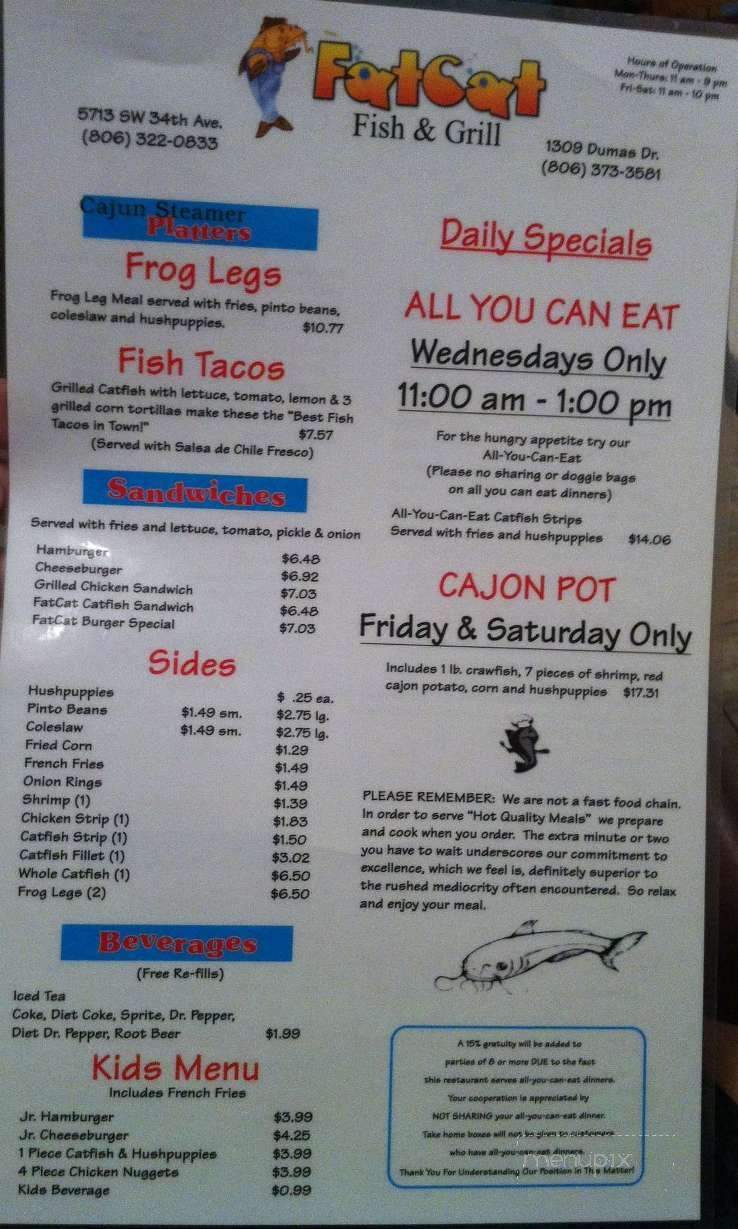 FatCat
Fish & Grill
5713 SW 34th Ave.
(806) 322-0833
Hours of Operation
Mon-Thurs: 11 am - 9 pm
Fri-Sat: 11 am - 10 pm
1309 Dumas Dr.
(806) 373-3581
Cajun Steamer
Platters
Frog Legs
Frog Leg Meal served with fries, pinto beans,
coleslaw and hushpuppies. $10.77
Fish Tacos
Grilled Catfish with lettuce, tomato, lemon & 3
grilled corn tortillas make these the "Best Fish
Tacos in Town!" $7.57
(Served with Salsa de Chile Fresco)
Sandwiches
Served with fries and lettuce, tomato, pickle & onion
Hamburger $6.48
Cheeseburger $6.92
Grilled Chicken Sandwich $7.03
FatCat Catfish Sandwich $6.48
FatCat Burger Special $7.03
Sides
Hushpuppies $ .25 ea.
Pinto Beans $1.49 sm. $2.75 lg.
Coleslaw $1.49 sm. $2.75 lg.
Fried Corn $1.29
French Fries $1.49
Onion Rings $1.49
Shrimp (1) $1.39
Chicken Strip (1) $1.83
Catfish Strip (1) $1.50
Catfish Fillet (1) $3.02
Whole Catfish (1) $6.50
Frog Legs (2) $6.50
Beverages
(Free Re-fills)
Iced Tea
Coke, Diet Coke, Sprite, Dr. Pepper,
Diet Dr. Pepper, Root Beer $1.99
Kids Menu
Includes French Fries
Jr. Hamburger $3.99
Jr. Cheeseburger $4.25
1 Piece Catfish & Hushpuppies $3.99
4 Piece Chicken Nuggets $3.99
Kids Beverage $0.99
Daily Specials
ALL YOU CAN EAT
Wednesdays Only
11:00 am - 1:00 pm
For the hungry appetite try our
All-You-Can-Eat
(Please no sharing or doggie bags
on all you can eat dinners)
All-You-Can-Eat Catfish Strips
Served with fries and hushpuppies $14.06
CAJON POT
Friday & Saturday Only
Includes 1 lb. crawfish, 7 pieces of shrimp, red
cajon potato, corn and hushpuppies $17.31
PLEASE REMEMBER: We are not a fast food chain.
In order to serve "Hot Quality Meals" we prepare
and cook when you order. The extra minute or two
you have to wait underscores our commitment to
excellence, which we feel is, definitely superior to
the rushed mediocrity often encountered. So relax
and enjoy your meal.
A 15% gratuity will be added to
parties of 8 or more DUE to the fact
this restaurant serves all-you-can-eat dinners.
Your cooperation is appreciated by
NOT SHARING your all-you-can-eat dinner.
Take home boxes will not be given to customers
who have all-you-can-eat dinners.
Thank You For Understanding Our Position in This Matter!
menupix